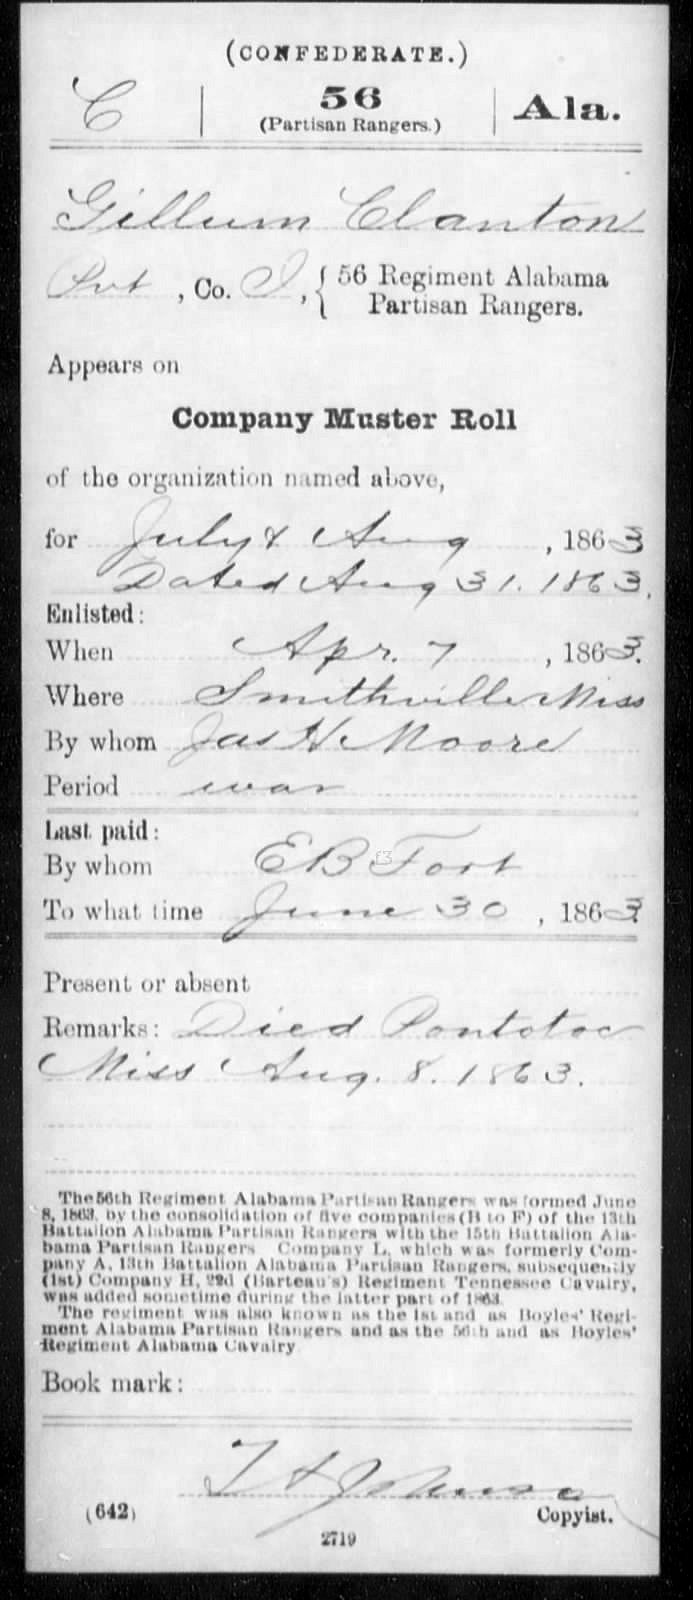 (CONFEDERATE.)
C | 56 | Ala.
(Partisan Rangers.)
Gillum Clanton
Pvt, Co. I, { 56 Regiment Alabama
Partisan Rangers.
Appears on
Company Muster Roll
of the organization named above,
for July & Aug, 1863
Dated Aug 31. 1863.
Enlisted:
When Apr. 7, 1863.
Where Smithville Miss
By whom Jas H Moore
Period war
Last paid:
By whom E B Fort
To what time June 30, 1863.
Present or absent
Remarks: Died Pontotoc
Miss Aug. 8. 1863.
The 56th Regiment Alabama Partisan Rangers was formed June
8, 1863, by the consolidation of five companies (B to F) of the 13th
Battalion Alabama Partisan Rangers with the 15th Battalion Ala-
bama Partisan Rangers Company L, which was formerly Com-
pany A, 13th Battalion Alabama Partisan Rangers, subsequently
(1st) Company H, 22d (Barteau's) Regiment Tennessee Cavalry,
was added sometime during the latter part of 1863.
The regiment was also known as the 1st and as Boyles' Regi-
ment Alabama Partisan Rangers and as the 56th and as Boyles'
Regiment Alabama Cavalry
Book mark:
(642)
Copyist.
2719